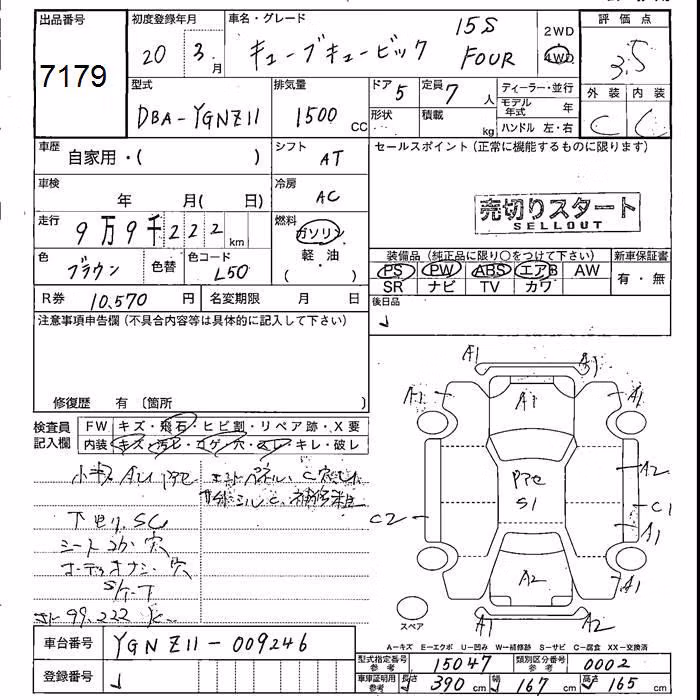 出品番号 初度登録年月 車名・グレード 評価点
7179 20 3月 キューブキュービック 15S FOUR 2WD 4WD 3.5
型式 排気量 ドア 5 定員 7 人 ディーラー・並行 外装 内装
DBA-YGNZ11 1500 CC 形状 積載 kg モデル年式 年 C C
ハンドル 左・右
車歴 自家用・( ) シフト AT セールスポイント(正常に機能するものに限ります)
車検 年 月( 日) 冷房 AC
売切りスタート
SELLOUT
走行 9万9千222km 燃料 ガソリン 軽・油 ( )
色 ブラウン 色替 色コード L50
装備品(純正品に限り○をつけて下さい) 新車保証書
PS PW ABS エアB AW 有・無
SR ナビ TV カワ
R券 10.570円 名変期限 月 日 後日品
注意事項申告欄(不具合内容等は具体的に記入して下さい)
修復歴 有(箇所 )
検査員記入欄 FW キズ・飛石・ヒビ割・リペア跡・X要
内装 キズ・汚レ・コゲ・穴・ヌレ・キレ・破レ
小キズ
下廻り.SC
シート コガ 穴
オーディオナシ・穴
S/キーナシ
99.222 K
A1 A1
A1 A1 A1
A2
PTC
S1
C2 C1
A1
A2 A1
A1 A1
スペア
A-キズ E-エクボ U-凹み W-補修跡 S-サビ C-腐食 XX-交換済
車台番号 YGNZ11-009246
登録番号
型式指定番号 参考 15047 類別区分番号 参考 0002
車庫証明用 参考 長さ 390 cm 幅 167 cm 高さ 165 cm